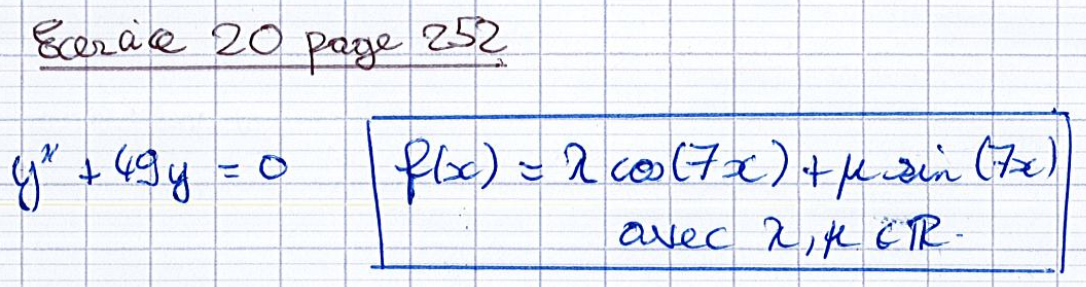 Exercice 20 page 252.
y" + 49y = 0
f(x) = λ cos(7x) + μ sin(7x)
avec λ, μ ∈ ℝ.